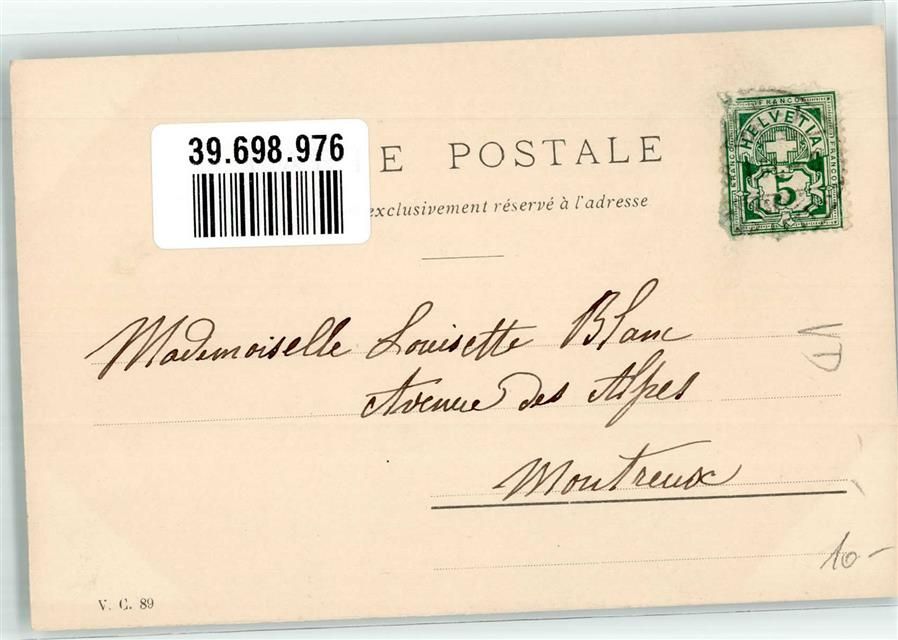 39.698.976
E POSTALE
exclusivement réservé à l'adresse
FRANCO
HELVETIA
FRANCO
FRANCO
5
Mademoiselle Louisette Blanc
Avenue des Alpes
Montreux
10-
V. C. 89